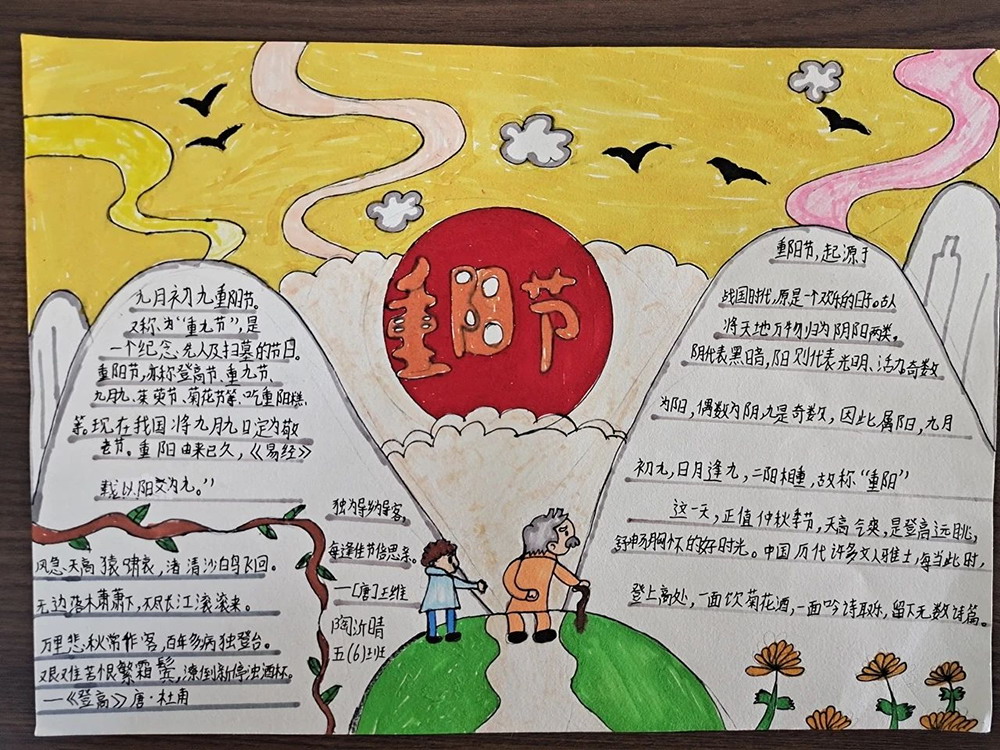 重阳节
九月初九重阳节。
又称为“重九节”,是
一个纪念先人及扫墓的节日。
重阳节,亦称登高节、重九节、
九月九、茱萸节、菊花节等、吃重阳糕、
等。现在我国将九月九日定为敬
老节。重阳由来已久,《易经》
载以阳爻为九。”
风急天高猿啸哀,渚清沙白鸟飞回。
无边落木萧萧下,不尽长江滚滚来。
万里悲秋常作客,百年多病独登台。
艰难苦恨繁霜鬓,潦倒新停浊酒杯。
—《登高》唐·杜甫
独为异乡异客,
每逢佳节倍思亲。
—[唐]王维
陶沂晴
五(6)班
重阳节,起源于
战国时代,原是一个欢乐的日子。古人
将天地万物归为阴阳两类。
阴代表黑暗,阳则代表光明、活力奇数
为阳,偶数为阴,九是奇数,因此属阳,九月
初九,日月逢九,二阳相重,故称“重阳”
这一天,正值仲秋季节,天高气爽,是登高远眺,
舒畅胸怀的好时光。中国历代许多文人雅士,每当此时,
登上高处,一面饮菊花酒,一面吟诗取乐,留下无数诗篇。